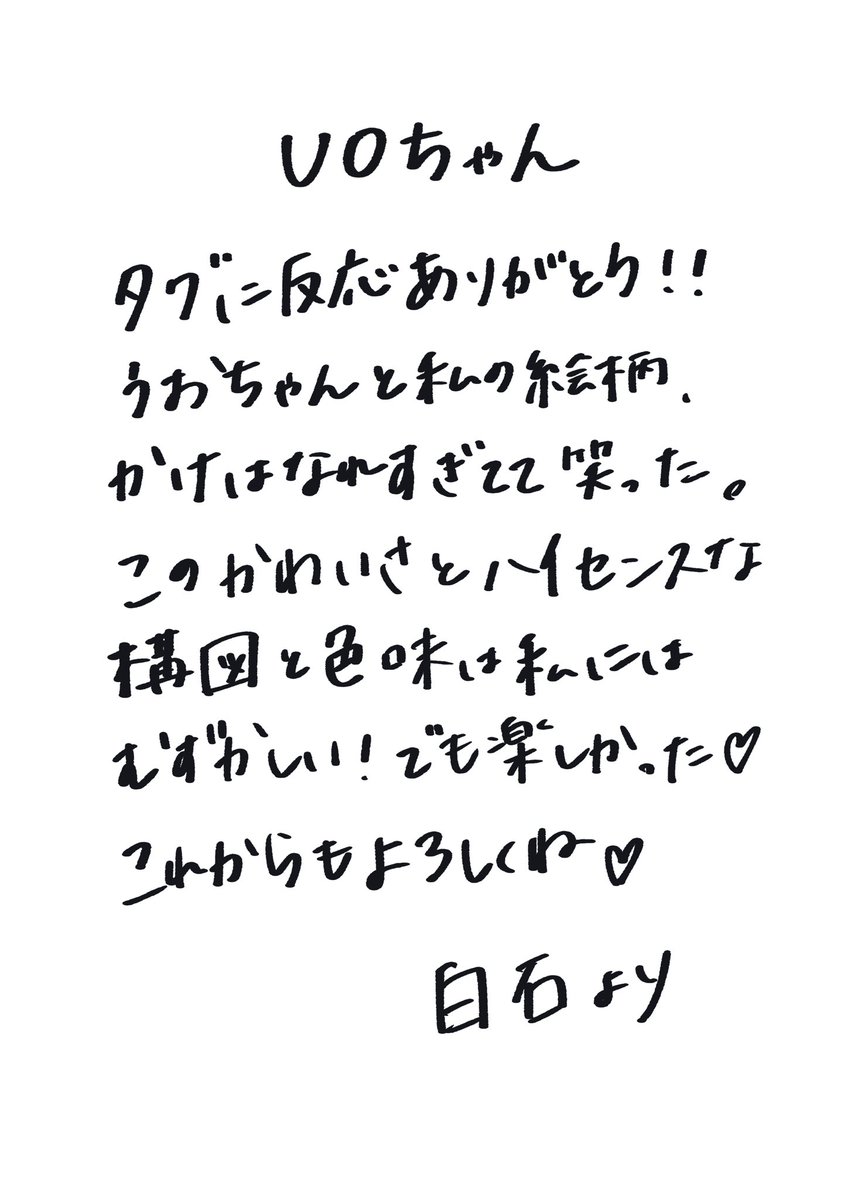 UOちゃん
タグに反応ありがとう!!
うおちゃんと私の絵柄、
かけはなれすぎてて笑った。
このかわいさとハイセンスな
構図と色味は私には
むずかしい!でも楽しかった♡
これからもよろしくね♡
白石より